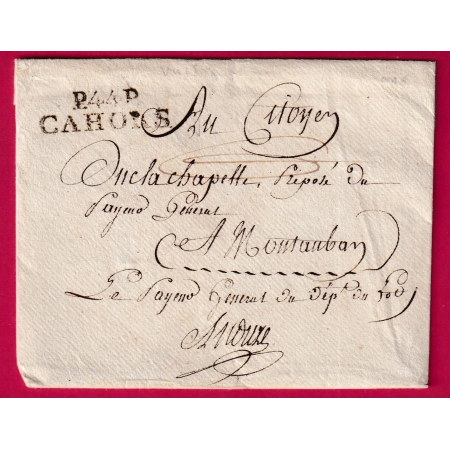 P.44.P.
CAHORS
Au Citoyen
Duclachapelle, Préposé du
Payeur Général
A Montauban
Le Payeur Général du Dépt. du Lot